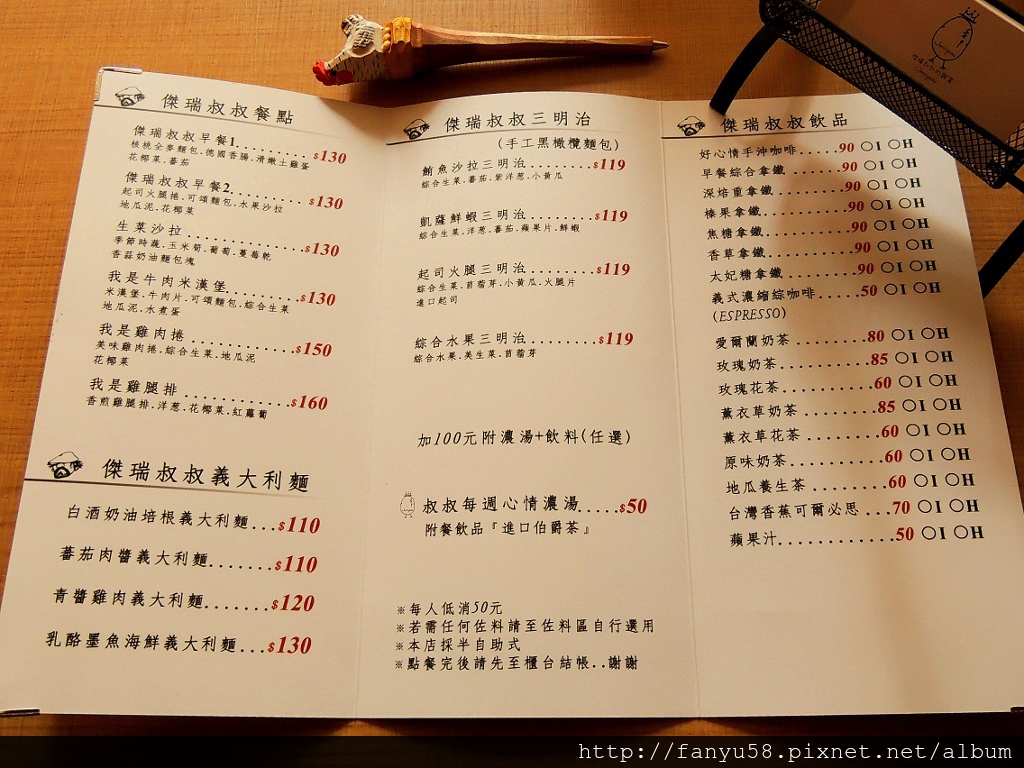 傑瑞叔叔餐點
傑瑞叔叔早餐1.......... $130
核桃全麥麵包.德國香腸.滑嫩土雞蛋
花椰菜.蕃茄
傑瑞叔叔早餐2.......... $130
起司火腿捲.可頌麵包.水果沙拉
地瓜泥.花椰菜
生菜沙拉............... $130
季節時蔬.玉米筍.葡萄.蔓莓乾
香蒜奶油麵包塊
我是牛肉米漢堡......... $130
米漢堡.牛肉片.可頌麵包.綜合生菜
地瓜泥.水煮蛋
我是雞肉捲............. $150
美味雞肉捲.綜合生菜.地瓜泥
花椰菜
我是雞腿排............. $160
香煎雞腿排.洋蔥.花椰菜.紅蘿蔔
傑瑞叔叔義大利麵
白酒奶油培根義大利麵...$110
蕃茄肉醬義大利麵.......$110
青醬雞肉義大利麵.......$120
乳酪墨魚海鮮義大利麵...$130
傑瑞叔叔三明治
(手工黑橄欖麵包)
鮪魚沙拉三明治.........$119
綜合生菜.蕃茄.紫洋蔥.小黃瓜
凱薩鮮蝦三明治.........$119
綜合生菜.洋蔥.蕃茄.蘋果片.鮮蝦
起司火腿三明治.........$119
綜合生菜.苜蓿芽.小黃瓜.火腿片
進口起司
綜合水果三明治.........$119
綜合水果.美生菜.苜蓿芽
加100元附濃湯+飲料(任選)
叔叔每週心情濃湯.....$50
附餐飲品『進口伯爵茶』
※每人低消50元
※若需任何佐料請至佐料區自行選用
※本店採半自助式
※點餐完後請先至櫃台結帳..謝謝
傑瑞叔叔飲品
好心情手沖咖啡.....90 ○I ○H
早餐綜合拿鐵 ......90 ○I ○H
深焙重拿鐵.........90 ○I ○H
榛果拿鐵...........90 ○I ○H
焦糖拿鐵...........90 ○I ○H
香草拿鐵...........90 ○I ○H
太妃糖拿鐵.........90 ○I ○H
義式濃縮綜咖啡.....50 ○I ○H
(ESPRESSO)
愛爾蘭奶茶.........80 ○I ○H
玫瑰奶茶...........85 ○I ○H
玫瑰花茶...........60 ○I ○H
薰衣草奶茶.........85 ○I ○H
薰衣草花茶.........60 ○I ○H
原味奶茶...........60 ○I ○H
地瓜養生茶.........60 ○I ○H
台灣香蕉可爾必思 ...70 ○I ○H
蘋果汁.............50 ○I ○H
http://fanyu58.pixnet.net/album